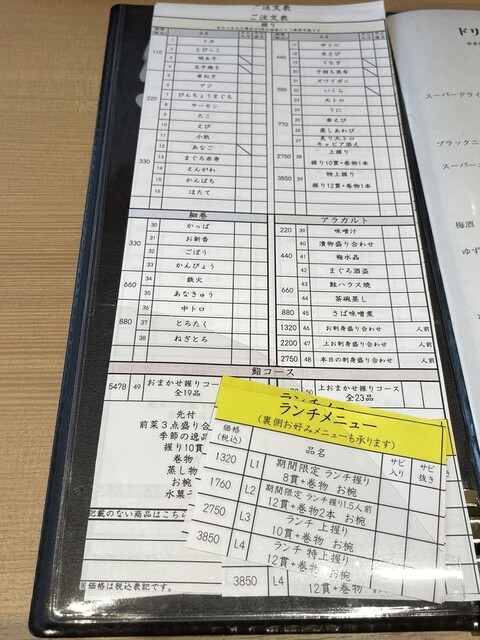 ご注文表
ご注文表
握り
110
1 イカ
2 とびっこ
3 明太子
4 玉子焼き
220
5 青柳ぎ
6 アジ
7 びんちょうまぐろ
8 サーモン
9 たこ
10 えび
330
11 小肌
12 あなご
13 まぐろ赤身
14 えんがわ
15 かんぱち
16 ほたて
440
17 中トロ
18 赤えび
19 うなぎ
20 子持ち昆布
21 ズワイガニ
22 いくら
550
23 大トロ
24 うに
770
25 車えび
26 蒸しあわび
27 炙り大トロ
キャビア添え
2750 28 上握り
握り10貫+巻物1本
3850 29 特上握り
握り12貫+巻物1本
細巻
330
30 かっぱ
31 お新香
32 ごぼう
33 かんぴょう
660
34 鉄火
35 あなきゅう
36 中トロ
880
37 とろたく
38 ねぎとろ
アラカルト
220 39 味噌汁
440
40 漬物盛り合わせ
41 梅水晶
42 まぐろ酒盗
660
43 鮭ハラス焼
44 茶碗蒸し
880 45 さば味噌煮
1320 46 お刺身盛り合わせ 人前
2200 47 上お刺身盛り合わせ 人前
2750 48 本日の刺身盛り合わせ 人前
鮨コース
5478 49 おまかせ握りコース
全19品
50 上おまかせ握りコース
全23品
先付
前菜3点盛り合
季節の逸品
握り10貫
巻物
蒸し物
お椀
水菓子
記載のない商品はこちら
※価格は税込表記です。
ランチメニュー
ランチメニュー
(裏側お好みメニューも承ります)
価格
(税込)
品名
サビ
入り
サビ
抜き
1320 L1 期間限定 ランチ握り
8貫+巻物 お椀
1760 L2 期間限定 ランチ握り1.5人前
12貫+巻物2本 お椀
2750 L3 ランチ 上握り
10貫+巻物 お椀
3850 L4 ランチ 特上握り
12貫+巻物 お椀
3850 L4
12貫+巻物 お椀
ドリ
スーパードライ
ブラックニ
スーパーニ
梅酒
ゆず